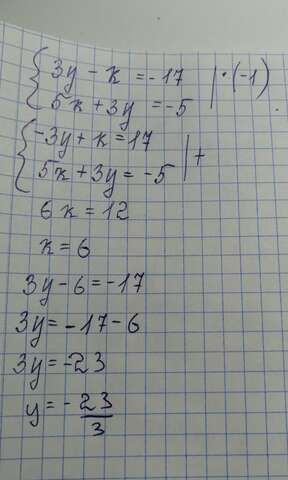 3y - x = -17 | · (-1)
5x + 3y = -5
-3y + x = 17 | +
5x + 3y = -5
6x = 12
x = 6
3y - 6 = -17
3y = -17 - 6
3y = -23
y = - 23/3